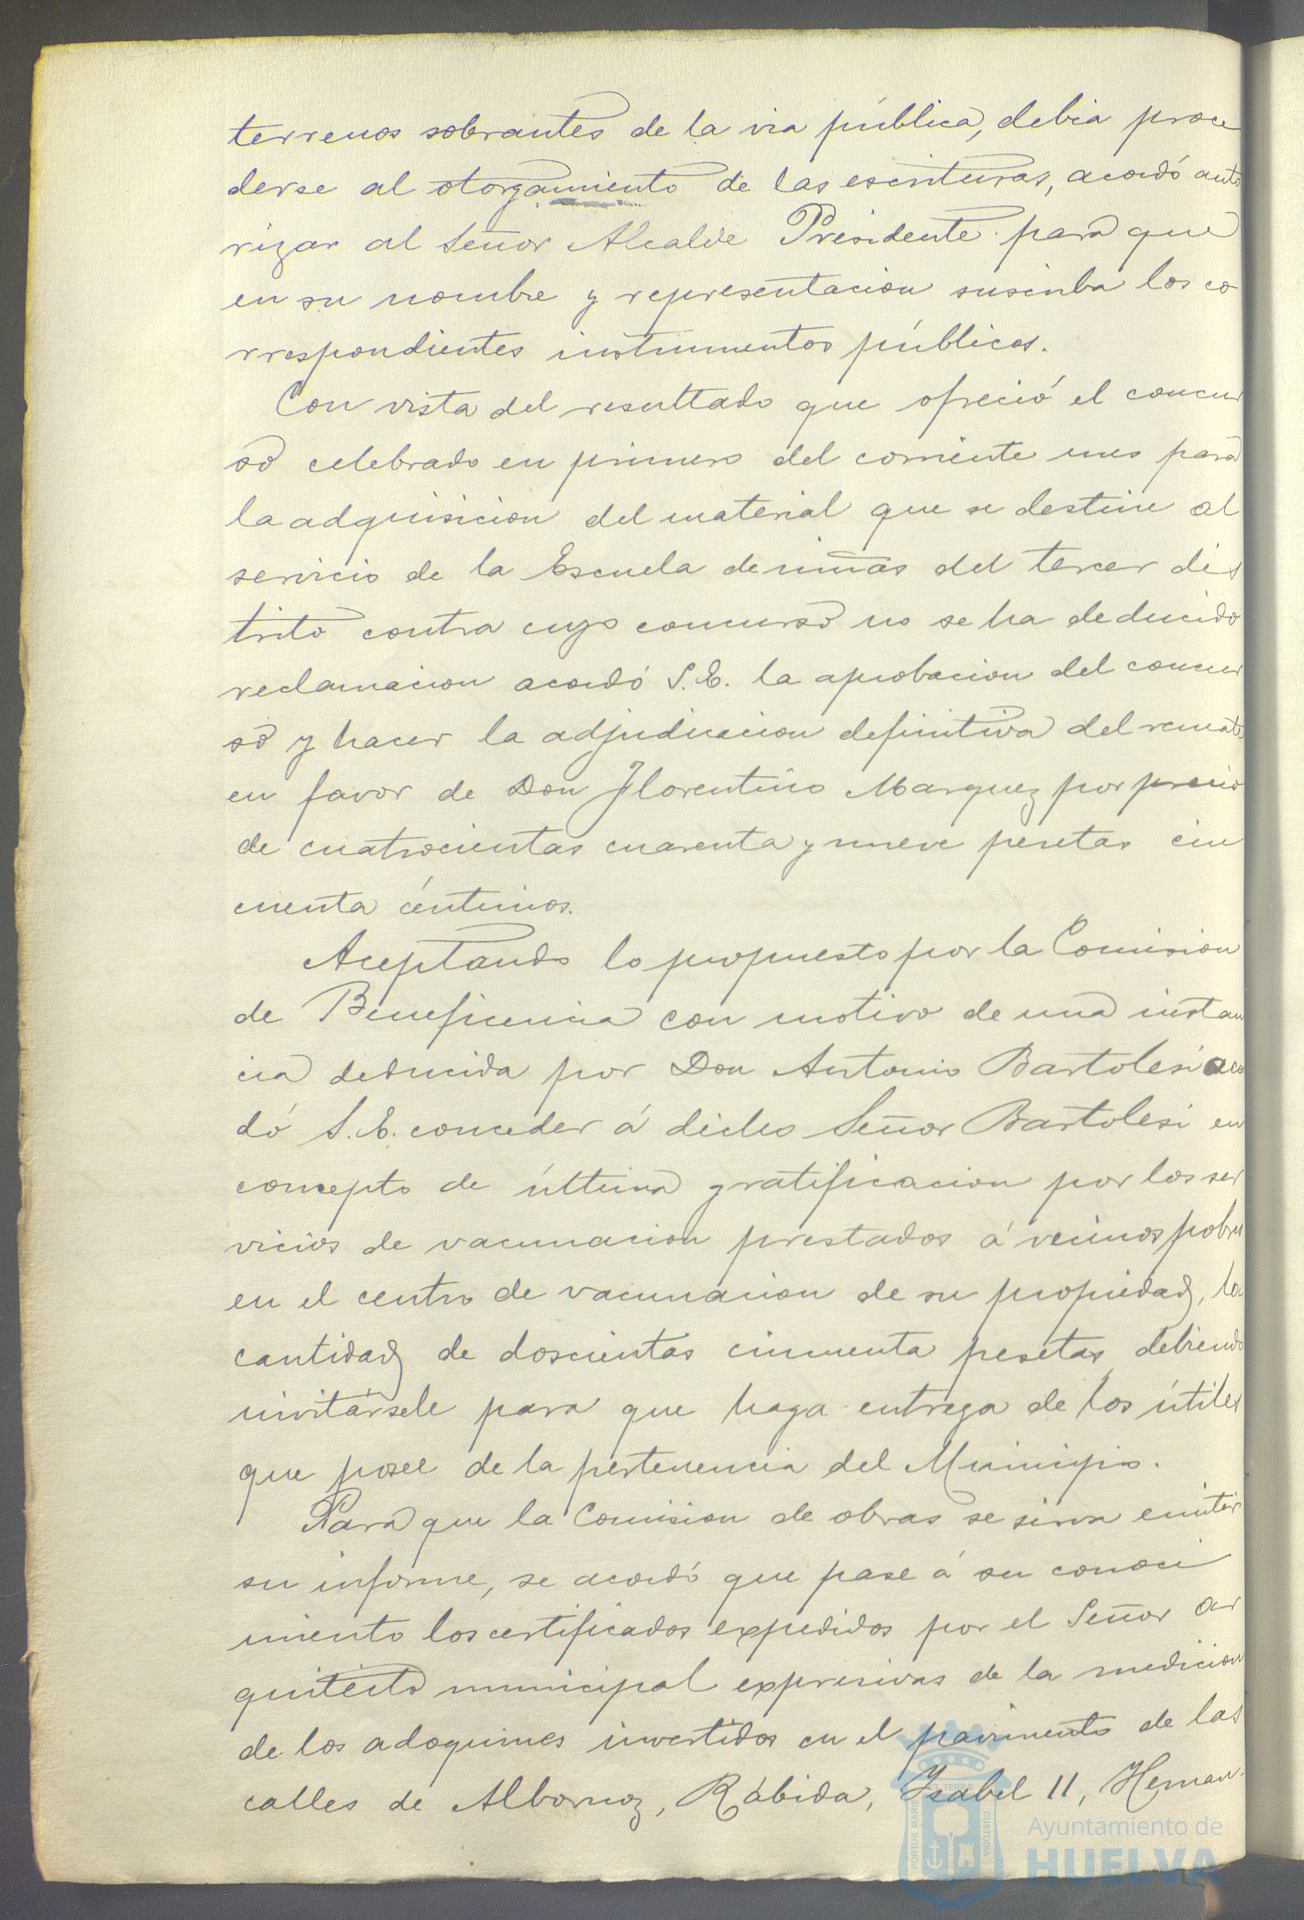 terrenos sobrantes de la via pública, debia proce
derse al otorgamiento de las escrituras, acordó auto
rizar al Señor Alcalde Presidente para que
en su nombre y representacion suscriba los co
rrespondientes instrumentos públicos.
Con vista del resultado que ofreció el concur
so celebrado en primero del corriente mes para
la adquisicion del material que se destine al
servicio de la Escuela de niñas del tercer dis
trito contra cuyo concurso no se ha deducido
reclamacion acordó S.E. la aprobacion del concur
so y hacer la adjudicacion definitiva del remate
en favor de Don Florentino Marquez por precio
de cuatrocientas cuarenta y nueve pesetas cin
cuenta céntimos.
Aceptando lo propuesto por la Comision
de Beneficencia con motivo de una instan
cia deducida por Don Antonio Bartolesi aco
dó S.E. conceder á dicho Señor Bartolesi en
concepto de última gratificacion por los ser
vicios de vacunacion prestados á vecinos pobres
en el centro de vacunacion de su propiedad, la
cantidad de doscientas cincuenta pesetas debiendo
invitársele para que haga entrega de los útiles
que posee de la pertenencia del Municipio.
Para que la Comision de obras se sirva emitir
su informe, se acordó que pase á su conoci
miento los certificados expedidos por el Señor ar
quitecto municipal expresivas de la medicion
de los adoquines invertidos en el pavimento de las
calles de Albornoz, Rábida, Ysabel II, Hernan-
PORTUS MARIS ET TERRAE CUSTODIA
Ayuntamiento de
HUELVA